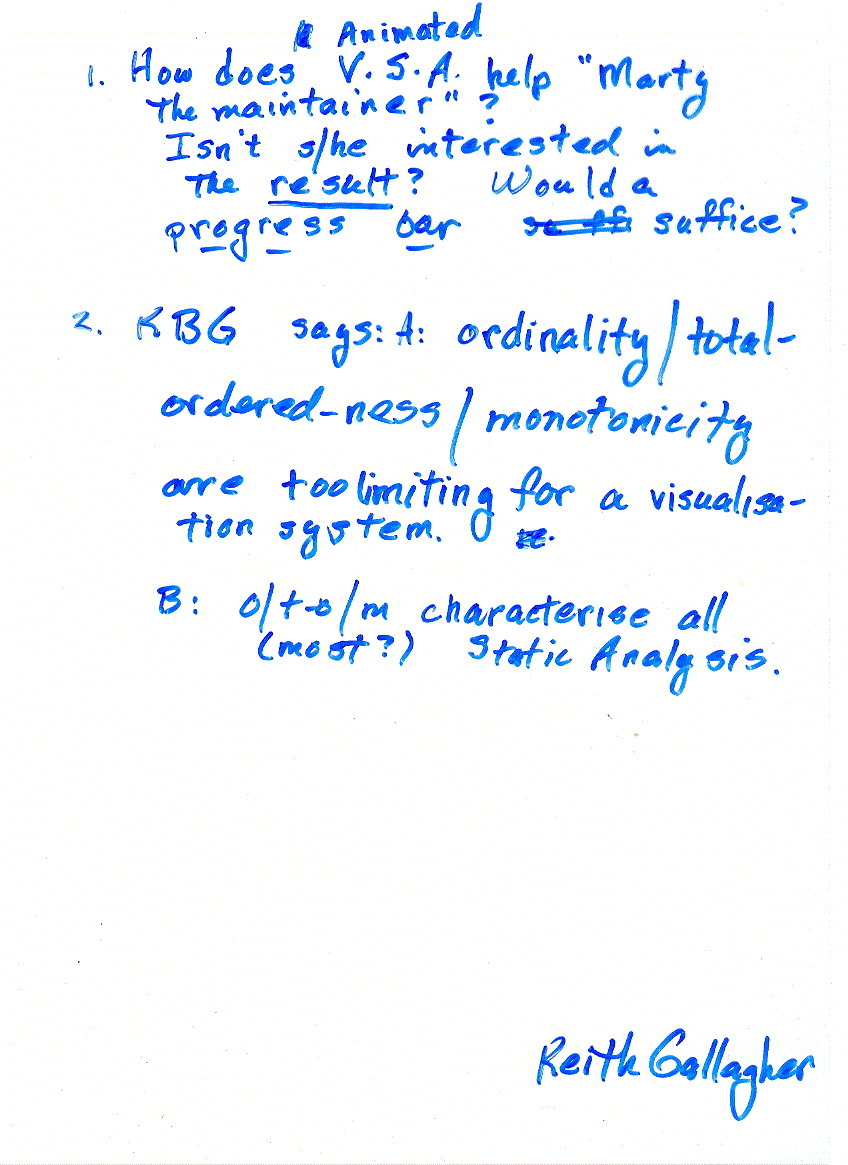 Animated
1. How does V.S.A. help "Marty
the maintainer"?
Isn't s/he interested in
the result? Would a
progress bar suffice?
2. KBG says: A: ordinality/total-
ordered-ness/monotonicity
are too limiting for a visualisa-
tion system.
B: o/t-o/m characterise all
(most?) Static Analysis.
Keith Gallagher